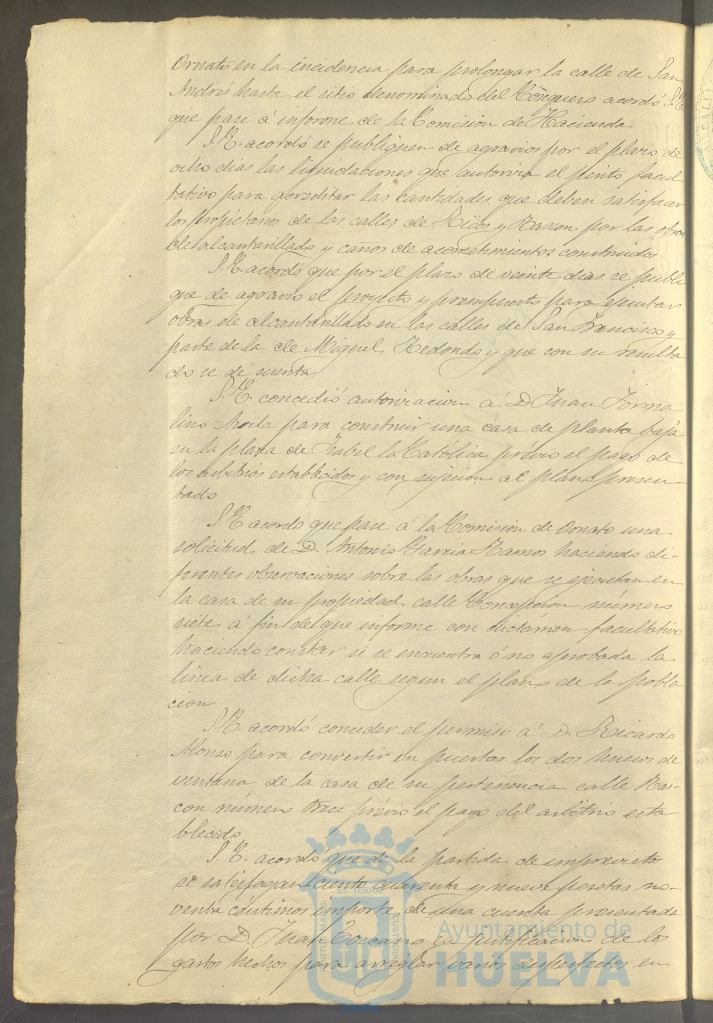 Ornato en la incidencia para prolongar la calle de San
Andres hasta el sitio denominado del Conquero acordó S.E.
que pase á informe de la Comision de Hacienda.
S.E. acordó se publiquen de agravios por el plazo de
ocho dias las liquidaciones que autoriza el perito facul
tativo para acreditar las cantidades que deben satisfacer
los propietarios de las calles de Ricos y Rascon por las obras
de alcantarillado y caños de acometimientos construidos
S.E. acordó que por el plazo de veinte dias se publi
que de agravio el proyecto y presupuesto para ejecutar
obras de alcantarillado en las calles de San Francisco y
parte de la de Miguel Redondo y que con su resulta
do se dé cuenta.
S.E. concedió autorizacion á D. Juan
Mora para construir una casa de planta baja
en la plaza de Isabel la Católica prévio el pago de
los arbitrios establecidos y con sujecion al plano presen-
tado
S.E. acordó que pase á la Comision de Ornato una
solicitud de D. Antonio Garcia Ramos haciendo di-
ferentes observaciones sobre las obras que se ejecutan en
la casa de su propiedad calle Concepcion número
siete á fin de que informe con dictamen facultativo
haciendo constar si se encuentra ó no aprobada la
linea de dicha calle segun el plano de la pobla
cion
S.E. acordó conceder el permiso á D. Ricardo
Alonso para convertir en puertas los dos huecos de
ventana de la casa de su pertenencia calle Ras-
con número trece prévio el pago del arbitrio esta
blecido
S.E. acordó que de la partida de imprevistos
se satisfagan ciento cuarenta y nueve pesetas no-
venta céntimos importe de una cuenta presentada
por D. Juan en justificacion de los
gastos hechos para arreglar varios desperfectos en
Ayuntamiento de
HUELVA